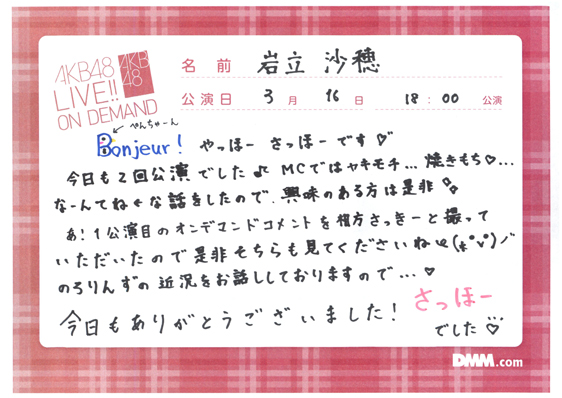 AKB48
LIVE!!
ON DEMAND
AKB
48
名前 岩立 沙穂
公演日 3月 16日 18:00 公演
ぺんちゃーん
Bonjeur! やっほー さっほーです♡
今日も2回公演でした♪ MCではヤキモチ…焼きもち♡…
なーんてねぇな話をしたので、興味のある方は是非
あ!1公演目のオンデマンドコメントを相方さっきーと撮って
いただいたので是非そちらも見てくださいねψ(*°v°)ノ"
のちりんずの近況をお話ししておりますので…♡
今日もありがとうございました!
さっほー
でした♡
DMM.com